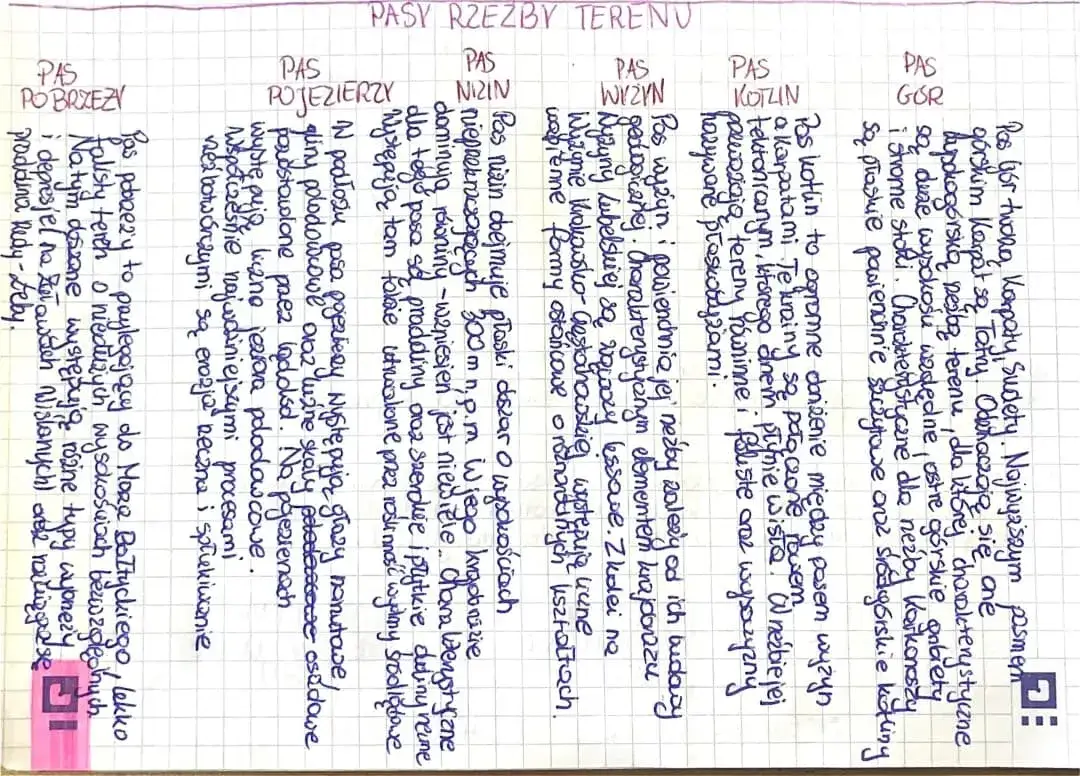 PASY RZEŹBY TERENU
PAS
POBRZEŻY
Pas pobrzeży to przylegający do Morza Bałtyckiego, lekko
falisty teren o niedużych wysokościach bezwzględnych.
Na tym obszarze występują różne typy wybrzeży
i depresje na Żuławach Wiślanych oraz nawiązująca się
pradolina Redy-Łeby.
PAS
POJEZIERZY
W podłożu pasa pojezierzy występują głazy narzutowe,
gliny polodowcowe oraz luźne skały osadowe
pozostawione przez lądolód. Na pojezierzach
występują liczne jeziora polodowcowe.
Współcześnie najważniejszymi procesami
rzeźbotwórczymi są erozja rzeczna i spłukiwanie
PAS
NIZIN
Pas nizin obejmuje płaski obszar o wysokościach
nieprzekraczających 300 m n.p.m W jego krajobrazie
dominują równiny - wzniesień jest niewiele. Charakterystyczne
dla tego pasa są pradoliny oraz szerokie i płytkie doliny rzeczne
Występują tam także utrwalone przez roślinność wydmy śródlądowe
PAS
WYŻYN
Pas wyżyn i powierzchnia jej rzeźby zależy od ich budowy
geologicznej. Charakterystycznym elementem krajobrazu
Wyżyny Lubelskiej są wąwozy lessowe. Z kolei na
Wyżynie Krakowsko-Częstochowskiej występują liczne
wapienne formy ostańcowe o różnorodnych kształtach.
PAS
KOTLIN
Pas kotlin to ogromne obniżenie między pasem wyżyn
a Karpatami. Te krainy są połączone rowem
tektonicznym, którego dnem płynie Wisła. W rzeźbie jej
przeważają tereny równinne i faliste oraz wypoczyzny
nazywane płaskowyżami.
PAS
GÓR
Pas Gór tworzą Karpaty, Sudety. Najwyższym pasmem
górskim Karpat są Tatry. Odznaczają się one
wysokogórską rzeźbą terenu, dla której charakterystyczne
są duże wysokości względne, ostre górskie grzbiety
i strome stoki. Charakterystyczne dla rzeźby Karkonoszy
są płaskie powierzchnie szczytowe oraz śródgórskie kotliny